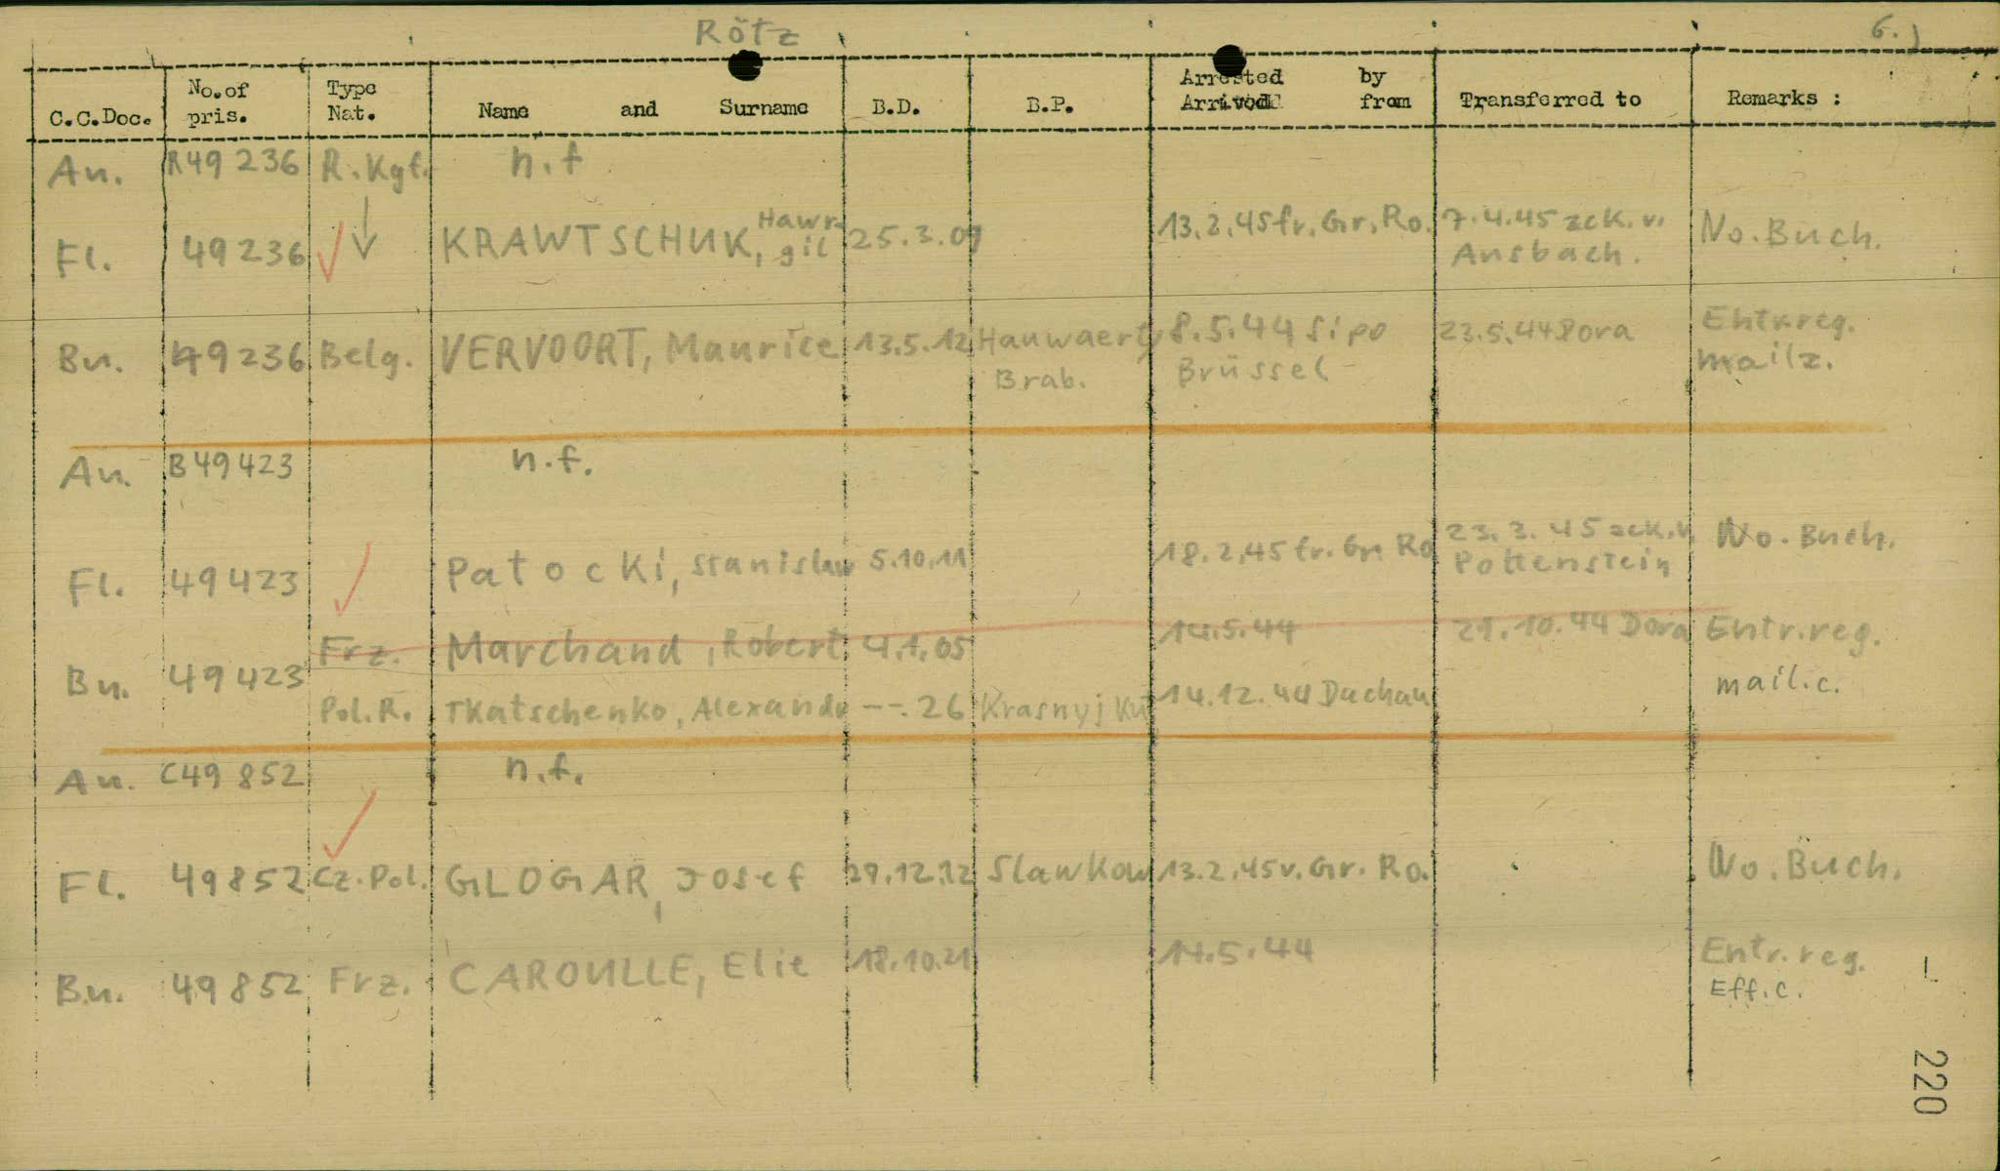 Rötz
6.)
C.C.Doc. No.of pris. Type Nat. Name and Surname B.D. B.P. Arrested by Arrived from Transferred to Remarks :
An. R49236 R.Kgf. n.f
Fl. 49236 KRAWTSCHUK, Hawr- 25.3.09 13.2.45 fr. Gr. Ro. 7.4.45 zck. v. No. Buch.
gil Ansbach.
Bu. 49236 Belg. VERVOORT, Maurice 13.5.12 Hauwaert, 8.5.44 Sipo 23.5.44 Dora Entr.reg.
Brab. Brüssel mailz.
An. B49423 n.f.
Fl. 49423 Patocki, Stanislaw 5.10.11 18.2.45 fr. Gr. Ro 23.3.45 zck.v. No. Buch.
Pottenstein
Bu. 49423 Frz. Marchand, Robert 4.1.05 14.5.44 29.10.44 Dora Entr.reg.
mail.c.
Pol.R. Tkatschenko, Alexande --.26 Krasnyj Kut 14.12.44 Dachau
An. C49852 n.f.
Fl. 49852 Cz.Pol. GLOGAR, Josef 29.12.12 Slawkow 13.2.45 v. Gr. Ro. No. Buch.
Bu. 49852 Frz. CAROULLE, Elie 18.10.21 14.5.44 Entr.reg.
Eff.c.
220